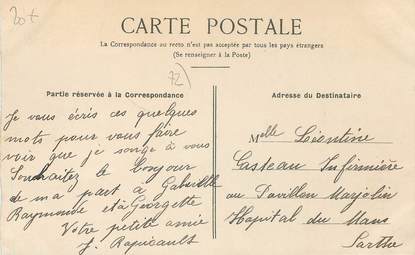 20+
CARTE POSTALE
La Correspondance au recto n'est pas acceptée par tous les pays étrangers
(Se renseigner à la Poste)
72)
Partie réservée à la Correspondance
Je vous écris ces quelques
mots pour vous faire
voir que je songe à vous
Souhaitez le bonjour
de ma part à Gabrielle
Raymonde et à Georgette
Votre petite amie
J. Rapicault
Adresse du Destinataire
Melle Léontine
Casteau Infirmière
au Pavillon Marjolin
Hopital du Mans
Sarthe